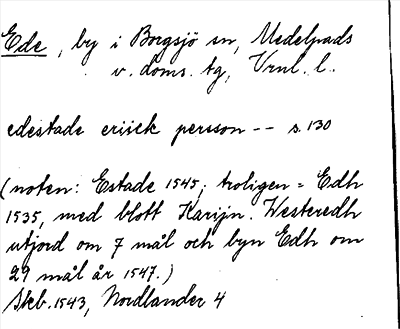 Ede, by i Borgsjö sn, Medelpads
v. doms. tg, Vrnl. l.
edestade eriick persson -- s. 130
(noten: Estade 1545; troligen = Edh
1535, med blott Karijn. Westeredh
utjord om 7 mål och byn Edh om
29 mål år 1547.)
Skb. 1543, Nordlander 4